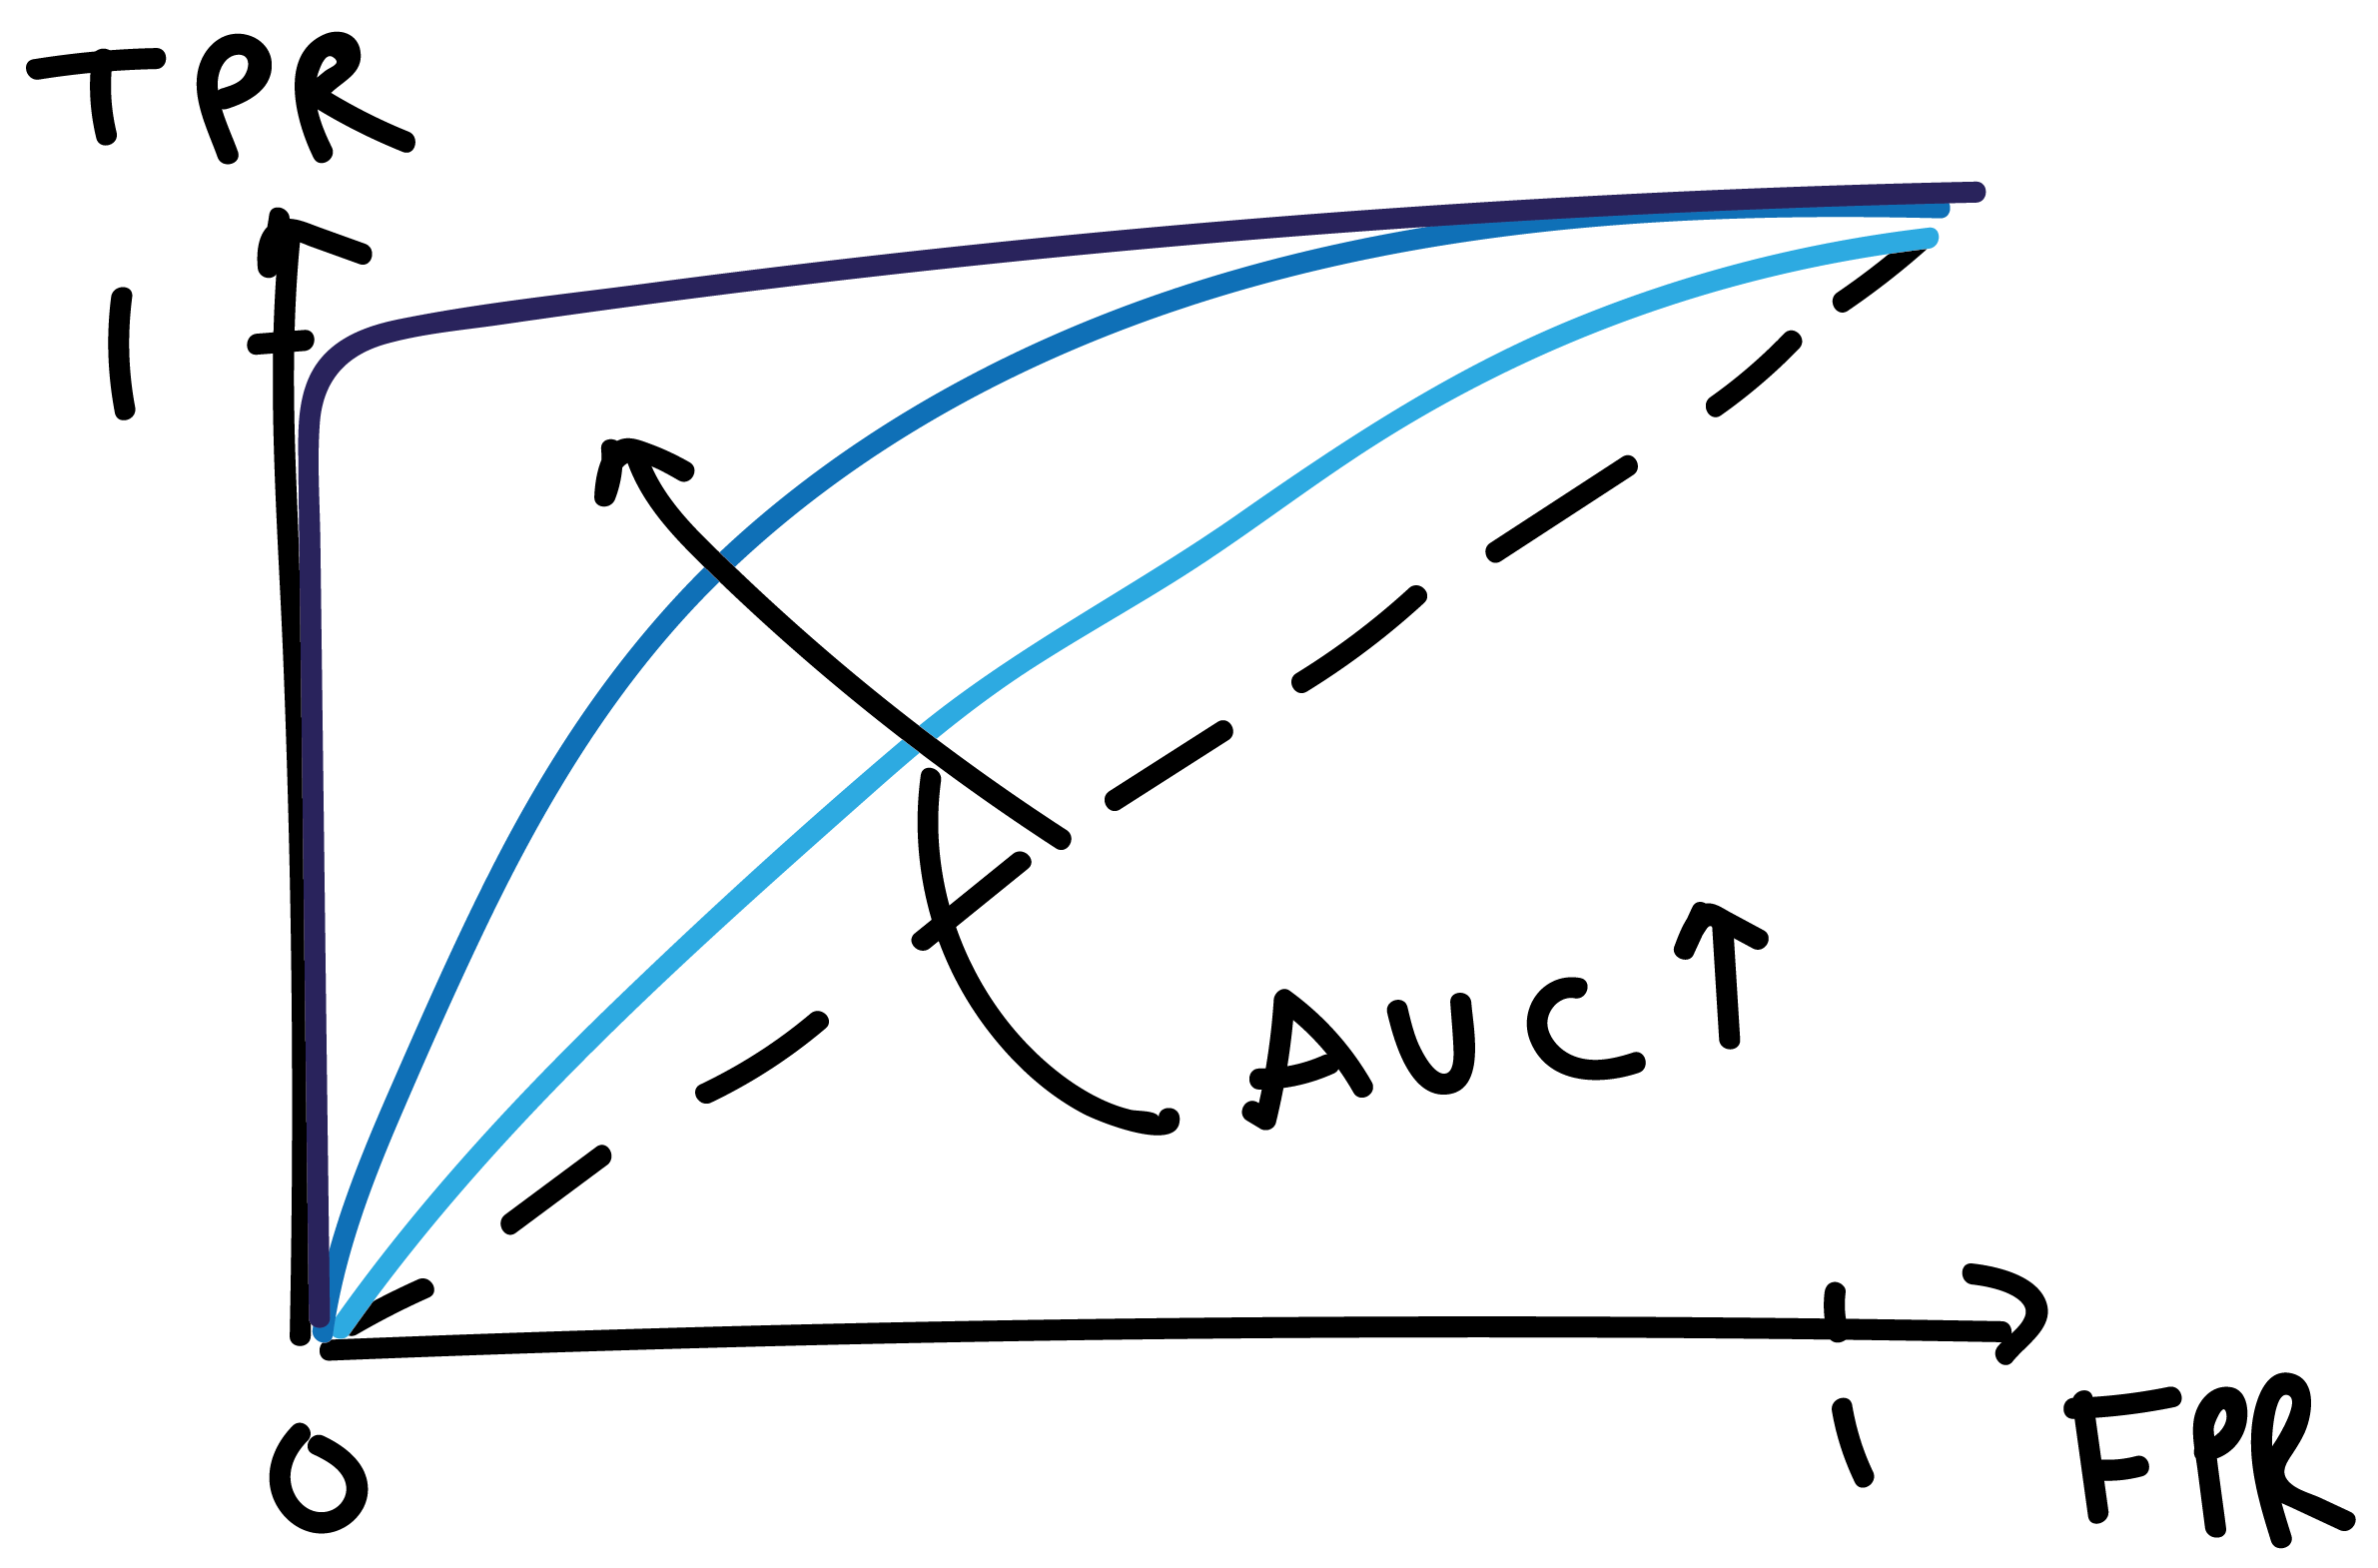 TPR
1
AUC ↑
0
1
FPR